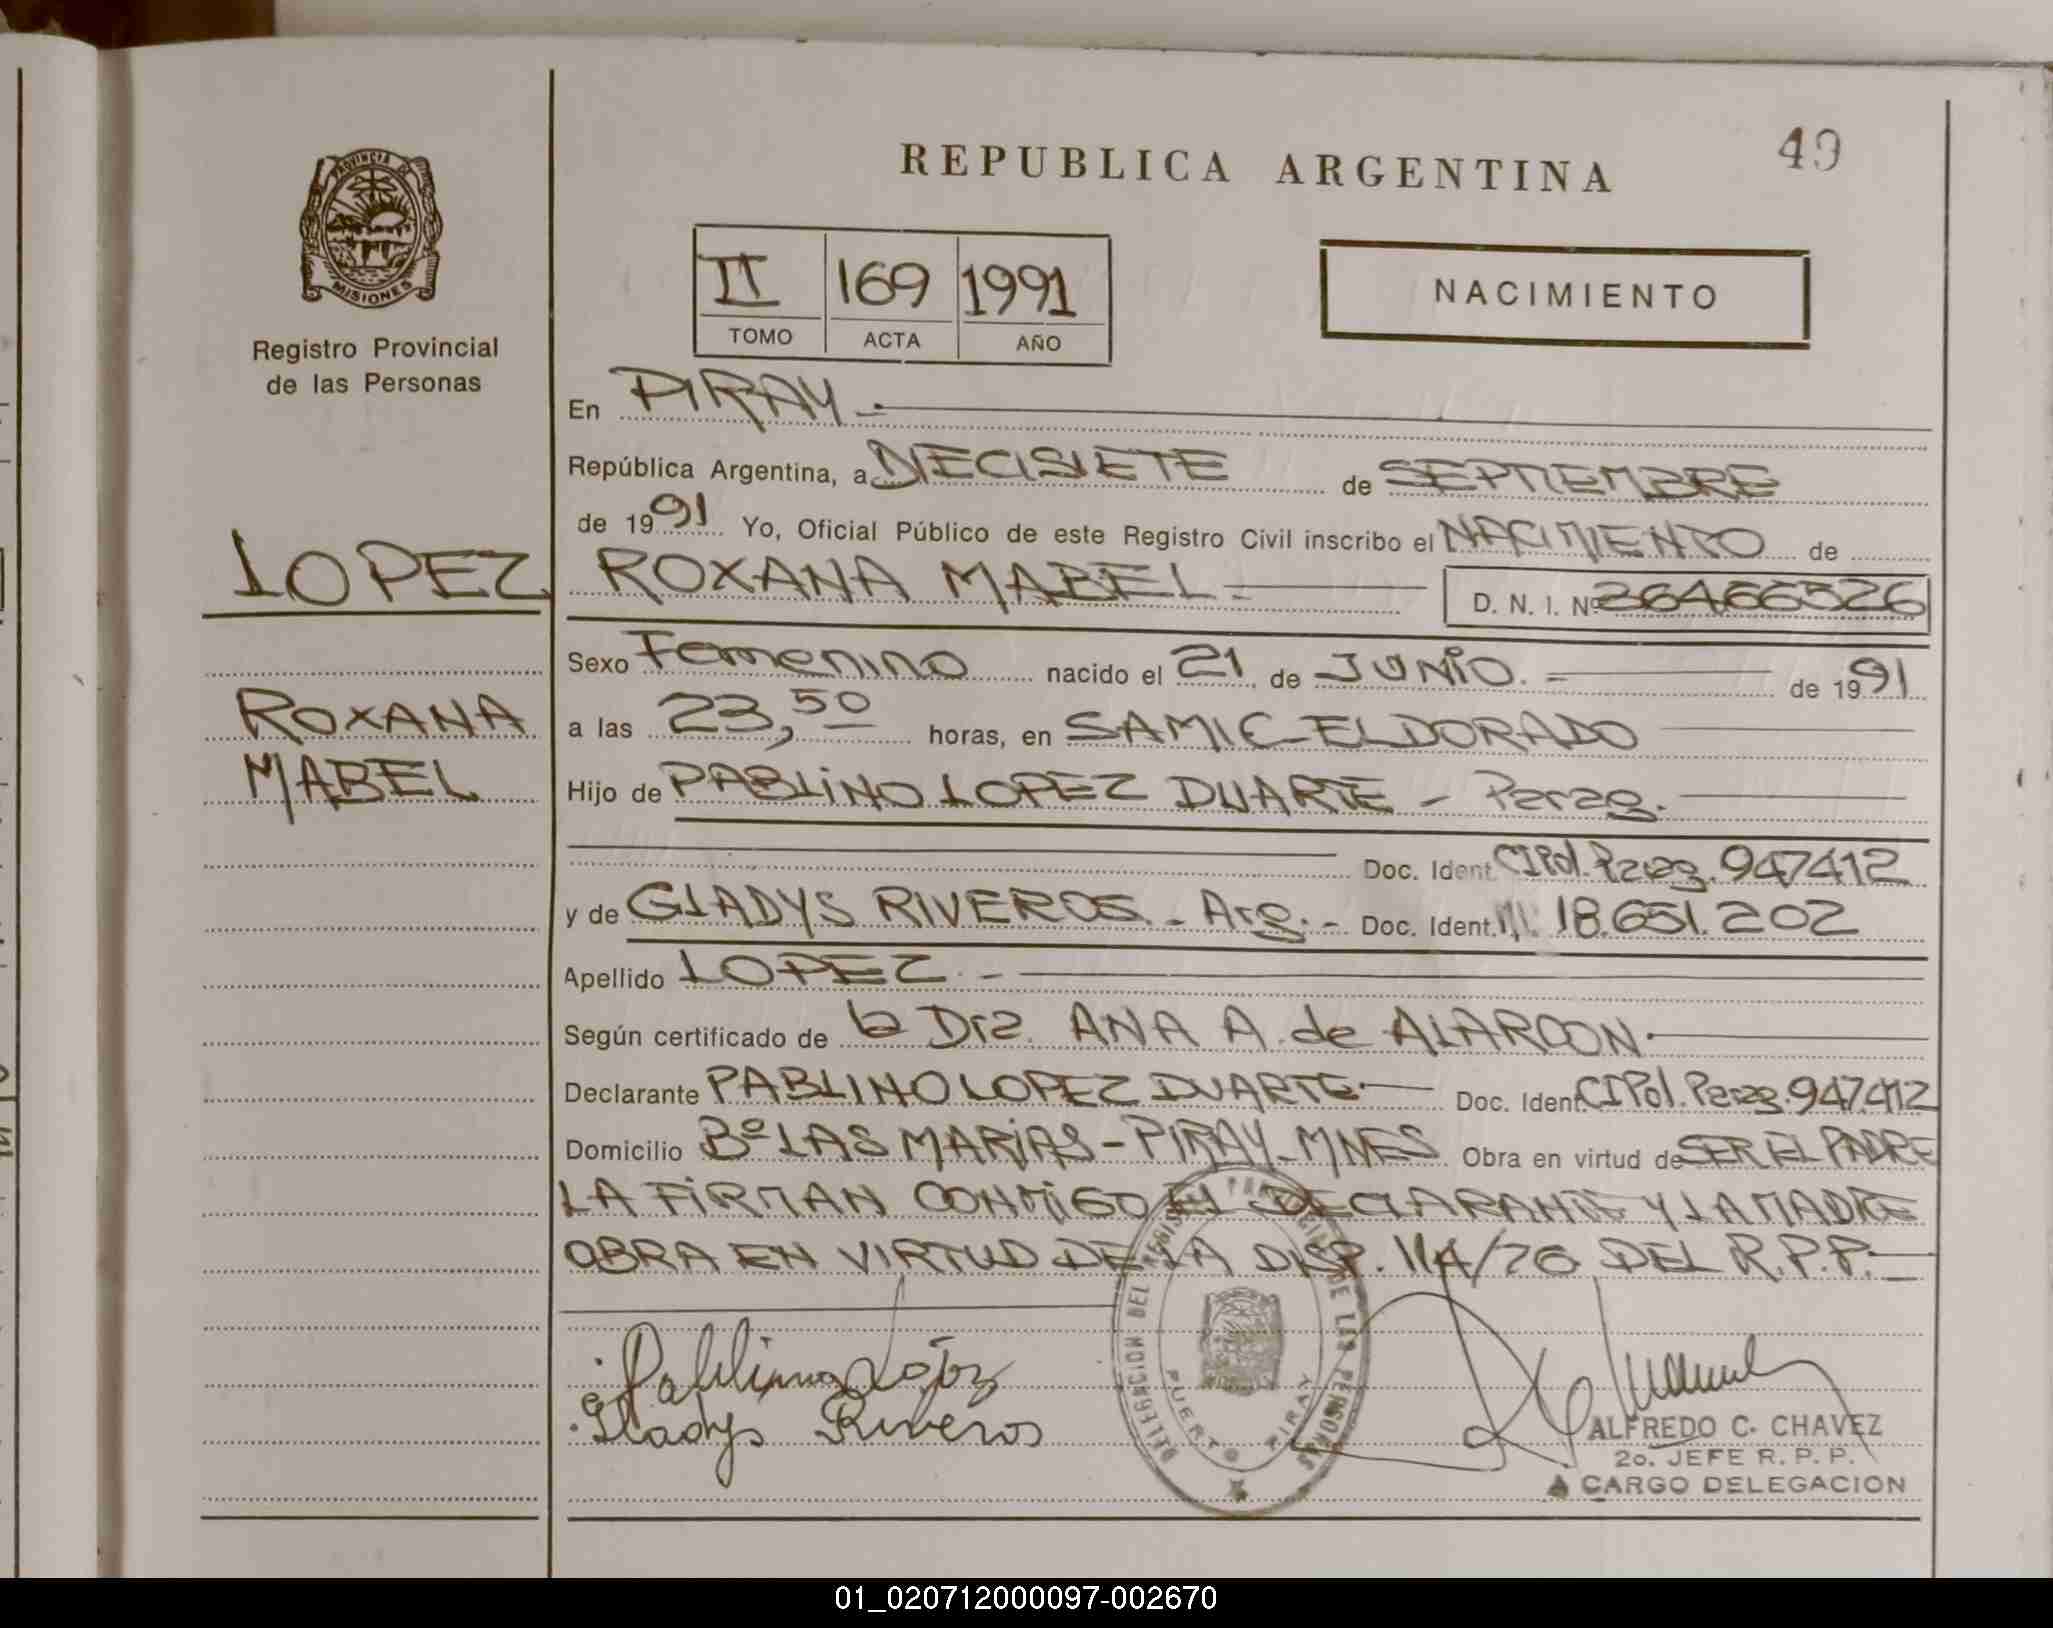 49
REPUBLICA ARGENTINA
PROVINCIA DE
MISIONES
Registro Provincial
de las Personas
II 169 1991
TOMO ACTA AÑO
NACIMIENTO
LOPEZ
ROXANA
MABEL
En PIRAY.-
República Argentina, a DIECISIETE de SEPTIEMBRE
de 1991 Yo, Oficial Público de este Registro Civil inscribo el NACIMIENTO de
ROXANA MABEL.- D. N. I. Nº 36466526
Sexo Femenino nacido el 21 de JUNIO.- de 1991
a las 23,50 horas, en SAMIC ELDORADO
Hijo de PABLINO LOPEZ DUARTE - Parag.
Doc. Ident. CIPol. Parag. 947412
y de GLADYS RIVEROS.- Arg.- Doc. Ident. 18.651.202
Apellido LOPEZ.-
Según certificado de la Dra. ANA A. de ALARCON.
Declarante PABLINO LOPEZ DUARTE. Doc. Ident. CIPol. Parag. 947.412
Domicilio Bº LAS MARIAS - PIRAY - MNES Obra en virtud de SER EL PADRE
LA FIRMAN CONMIGO EL DECLARANTE Y LA MADRE
OBRA EN VIRTUD DE LA DISP. 114/76 DEL R.P.P.
DELEGACION DEL REGISTRO PROVINCIAL DE LAS PERSONAS
PUERTO PIRAY
Pablino López
Gladys Riveros
ALFREDO C. CHAVEZ
2o. JEFE R. P. P.
A CARGO DELEGACION
01_020712000097-002670